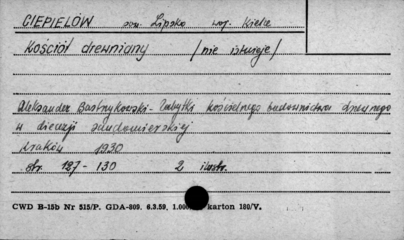 CIEPIELÓW pow. Lipsko woj. Kielce
Kościół drewniany /nie istnieje/
Aleksander Bastrzykowski - Zabytki kościelnego budownictwa drewnianego
w diecezji sandomierskiej
Kraków 1930
str. 127-130 2 ilustr.
CWD B-15b Nr 515/P. GDA-809. 6.3.59, karton 180/V.